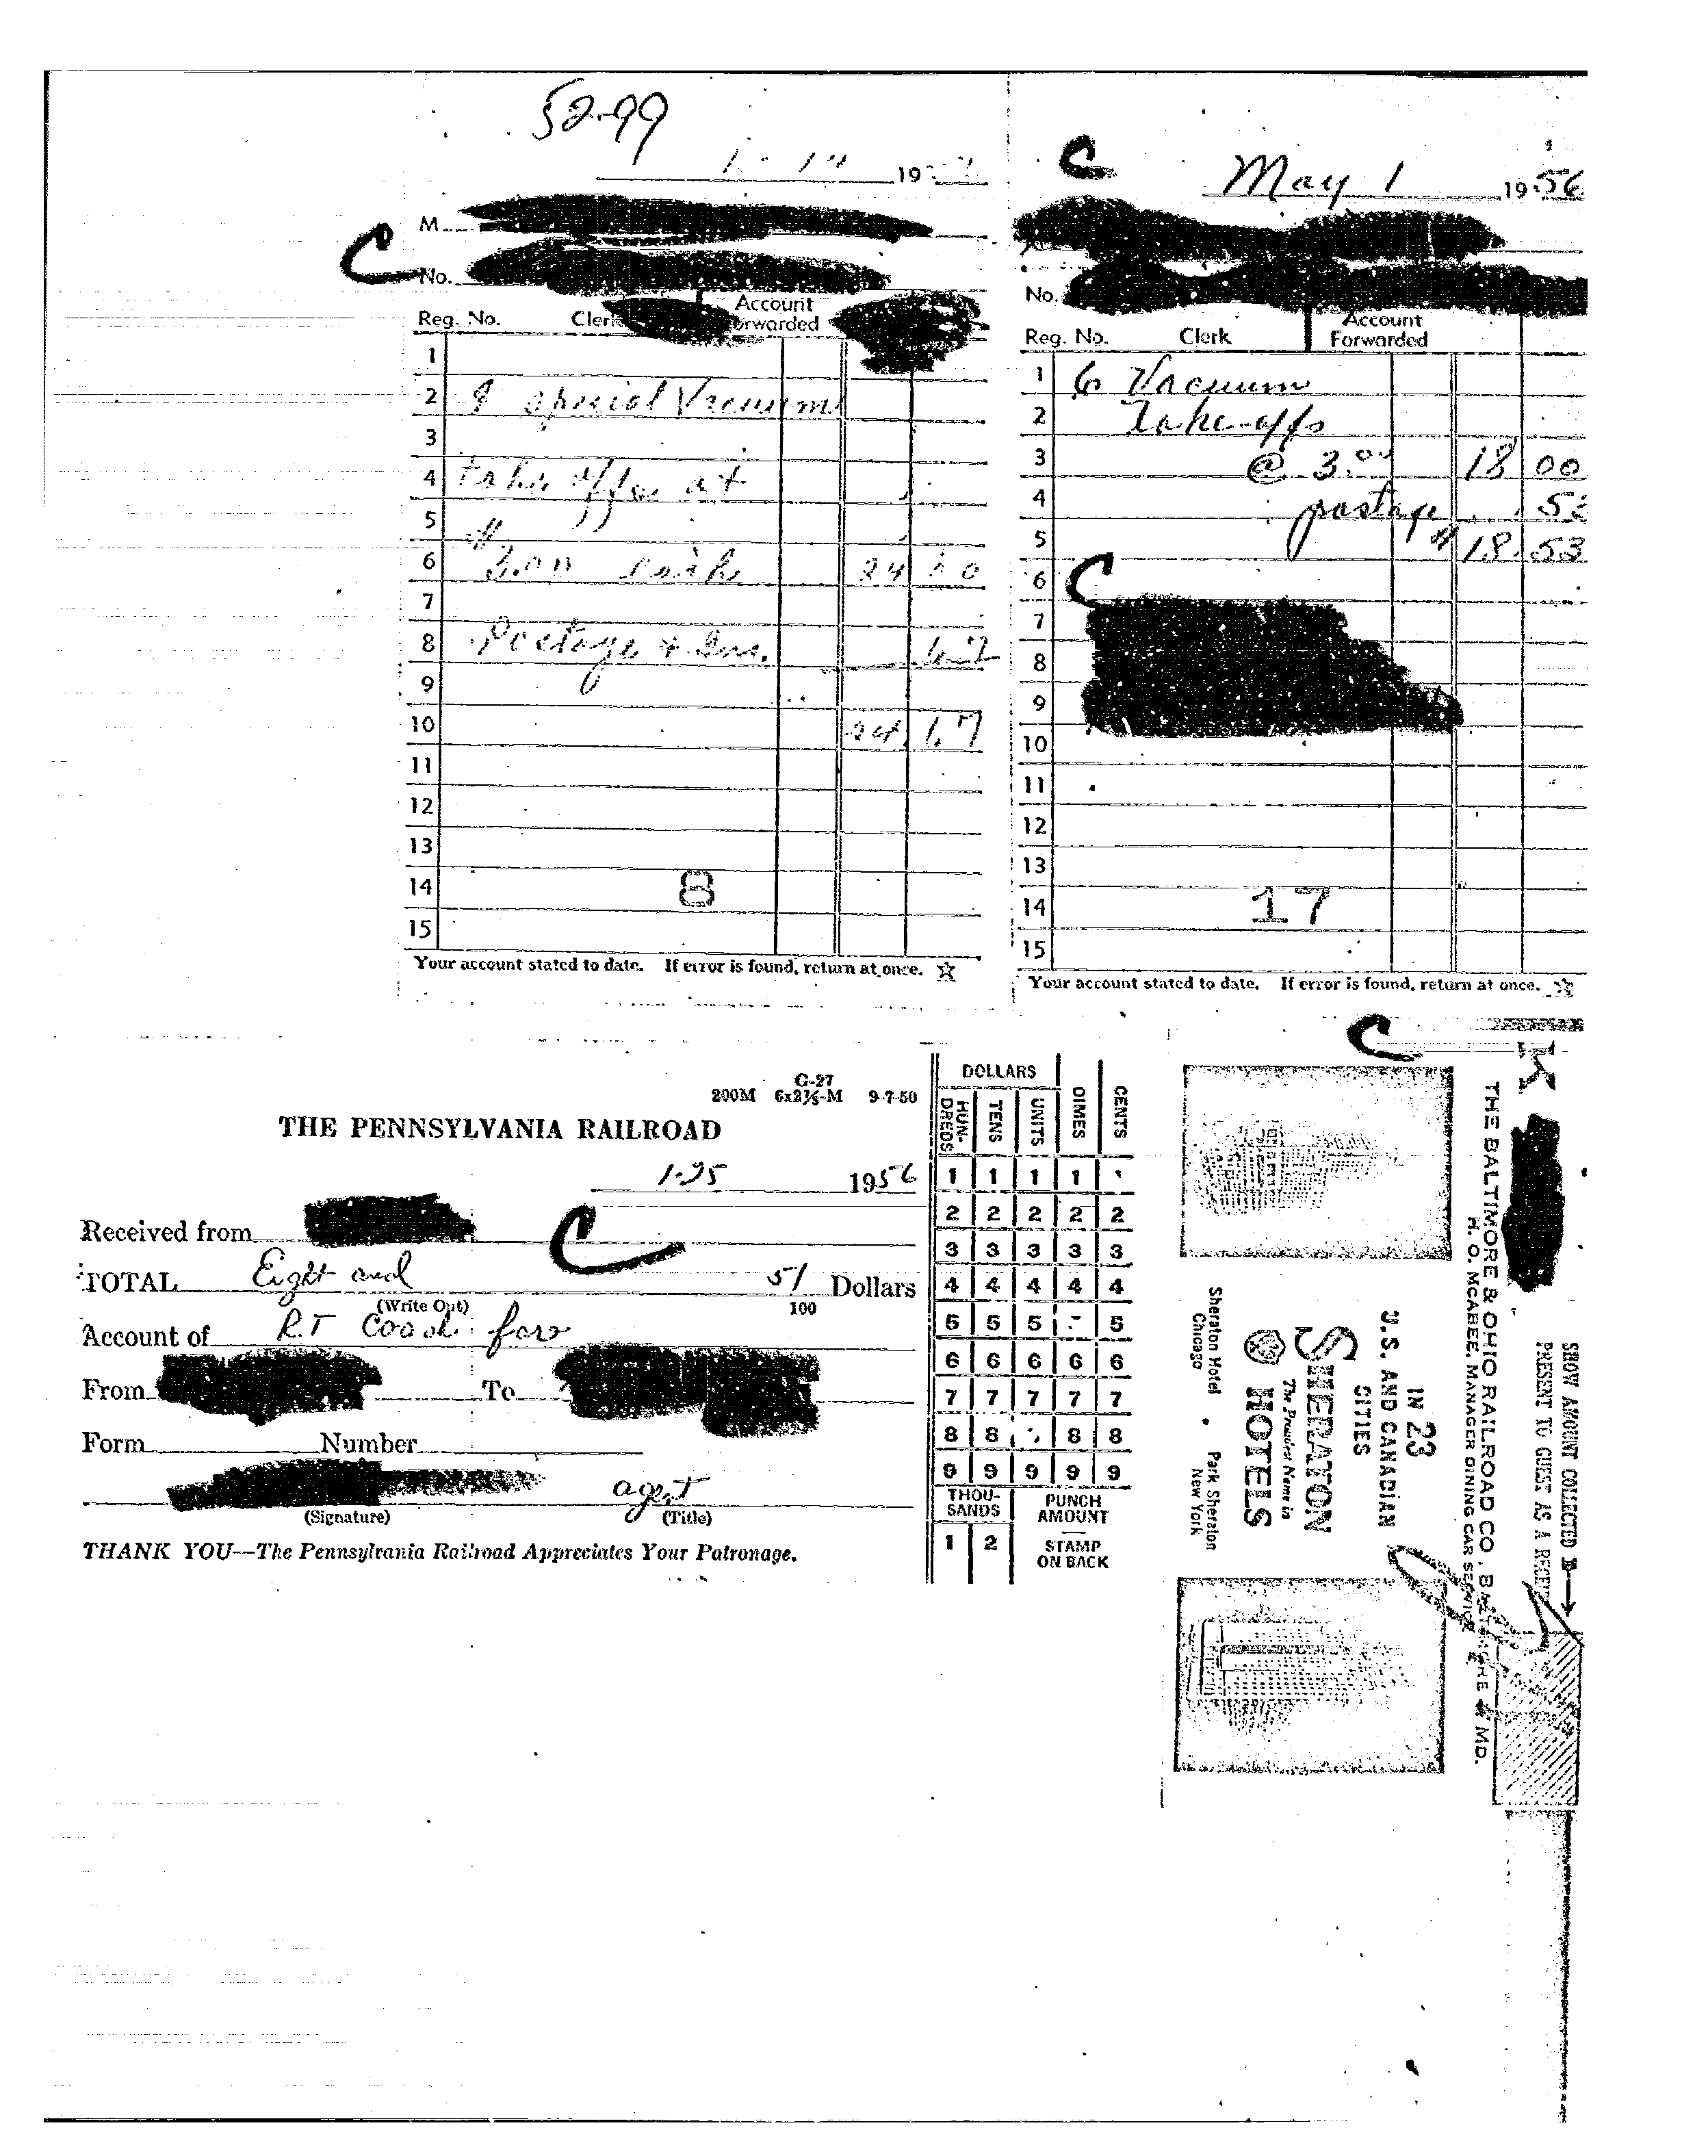 52-99
19
M
No.
Account
Reg. No. Clerk Forwarded
1
2 special Vacuum
3
4 take offs at
5
6 $3.00 each 24
7
8 Postage & Ins.
9
10 24
11
12
13
14 8
15
Your account stated to date. If error is found, return at once.
C
C
May 1 1956
No.
Account
Reg. No. Clerk Forwarded
1 6 Vacuum
2 Take-offs
3 @ 3.00 18 00
4 postage
5 $18.53
6 C
7
8
9
10
11
12
13
14 17
15
Your account stated to date. If error is found, return at once.
G-27
200M 9-7-50
THE PENNSYLVANIA RAILROAD
1-25 1956
Received from C
TOTAL Eight and 51 Dollars
(Write Out) 100
Account of R.T Coach fare
From To
Form Number
agent
(Signature) (Title)
THANK YOU--The Pennsylvania Railroad Appreciates Your Patronage.
DOLLARS
HUN-DREDS TENS UNITS DIMES CENTS
1 1 1 1
2 2 2 2 2
3 3 3 3 3
4 4 4 4 4
5 5 5 5
6 6 6 6 6
7 7 7 7 7
8 8 8 8
9 9 9 9 9
THOU-SANDS
1 2
PUNCH AMOUNT
STAMP ON BACK
C
K
SHOW AMOUNT COLLECTED
PRESENT TO GUEST AS A RECEIPT
THE BALTIMORE & OHIO RAILROAD CO., BALTIMORE MD.
H. O. MCABEE, MANAGER DINING CAR SERVICE
IN 23
U.S. AND CANADIAN
CITIES
SHERATON
The Proudest Name in
HOTELS
Sheraton Hotel • Park Sheraton
Chicago New York